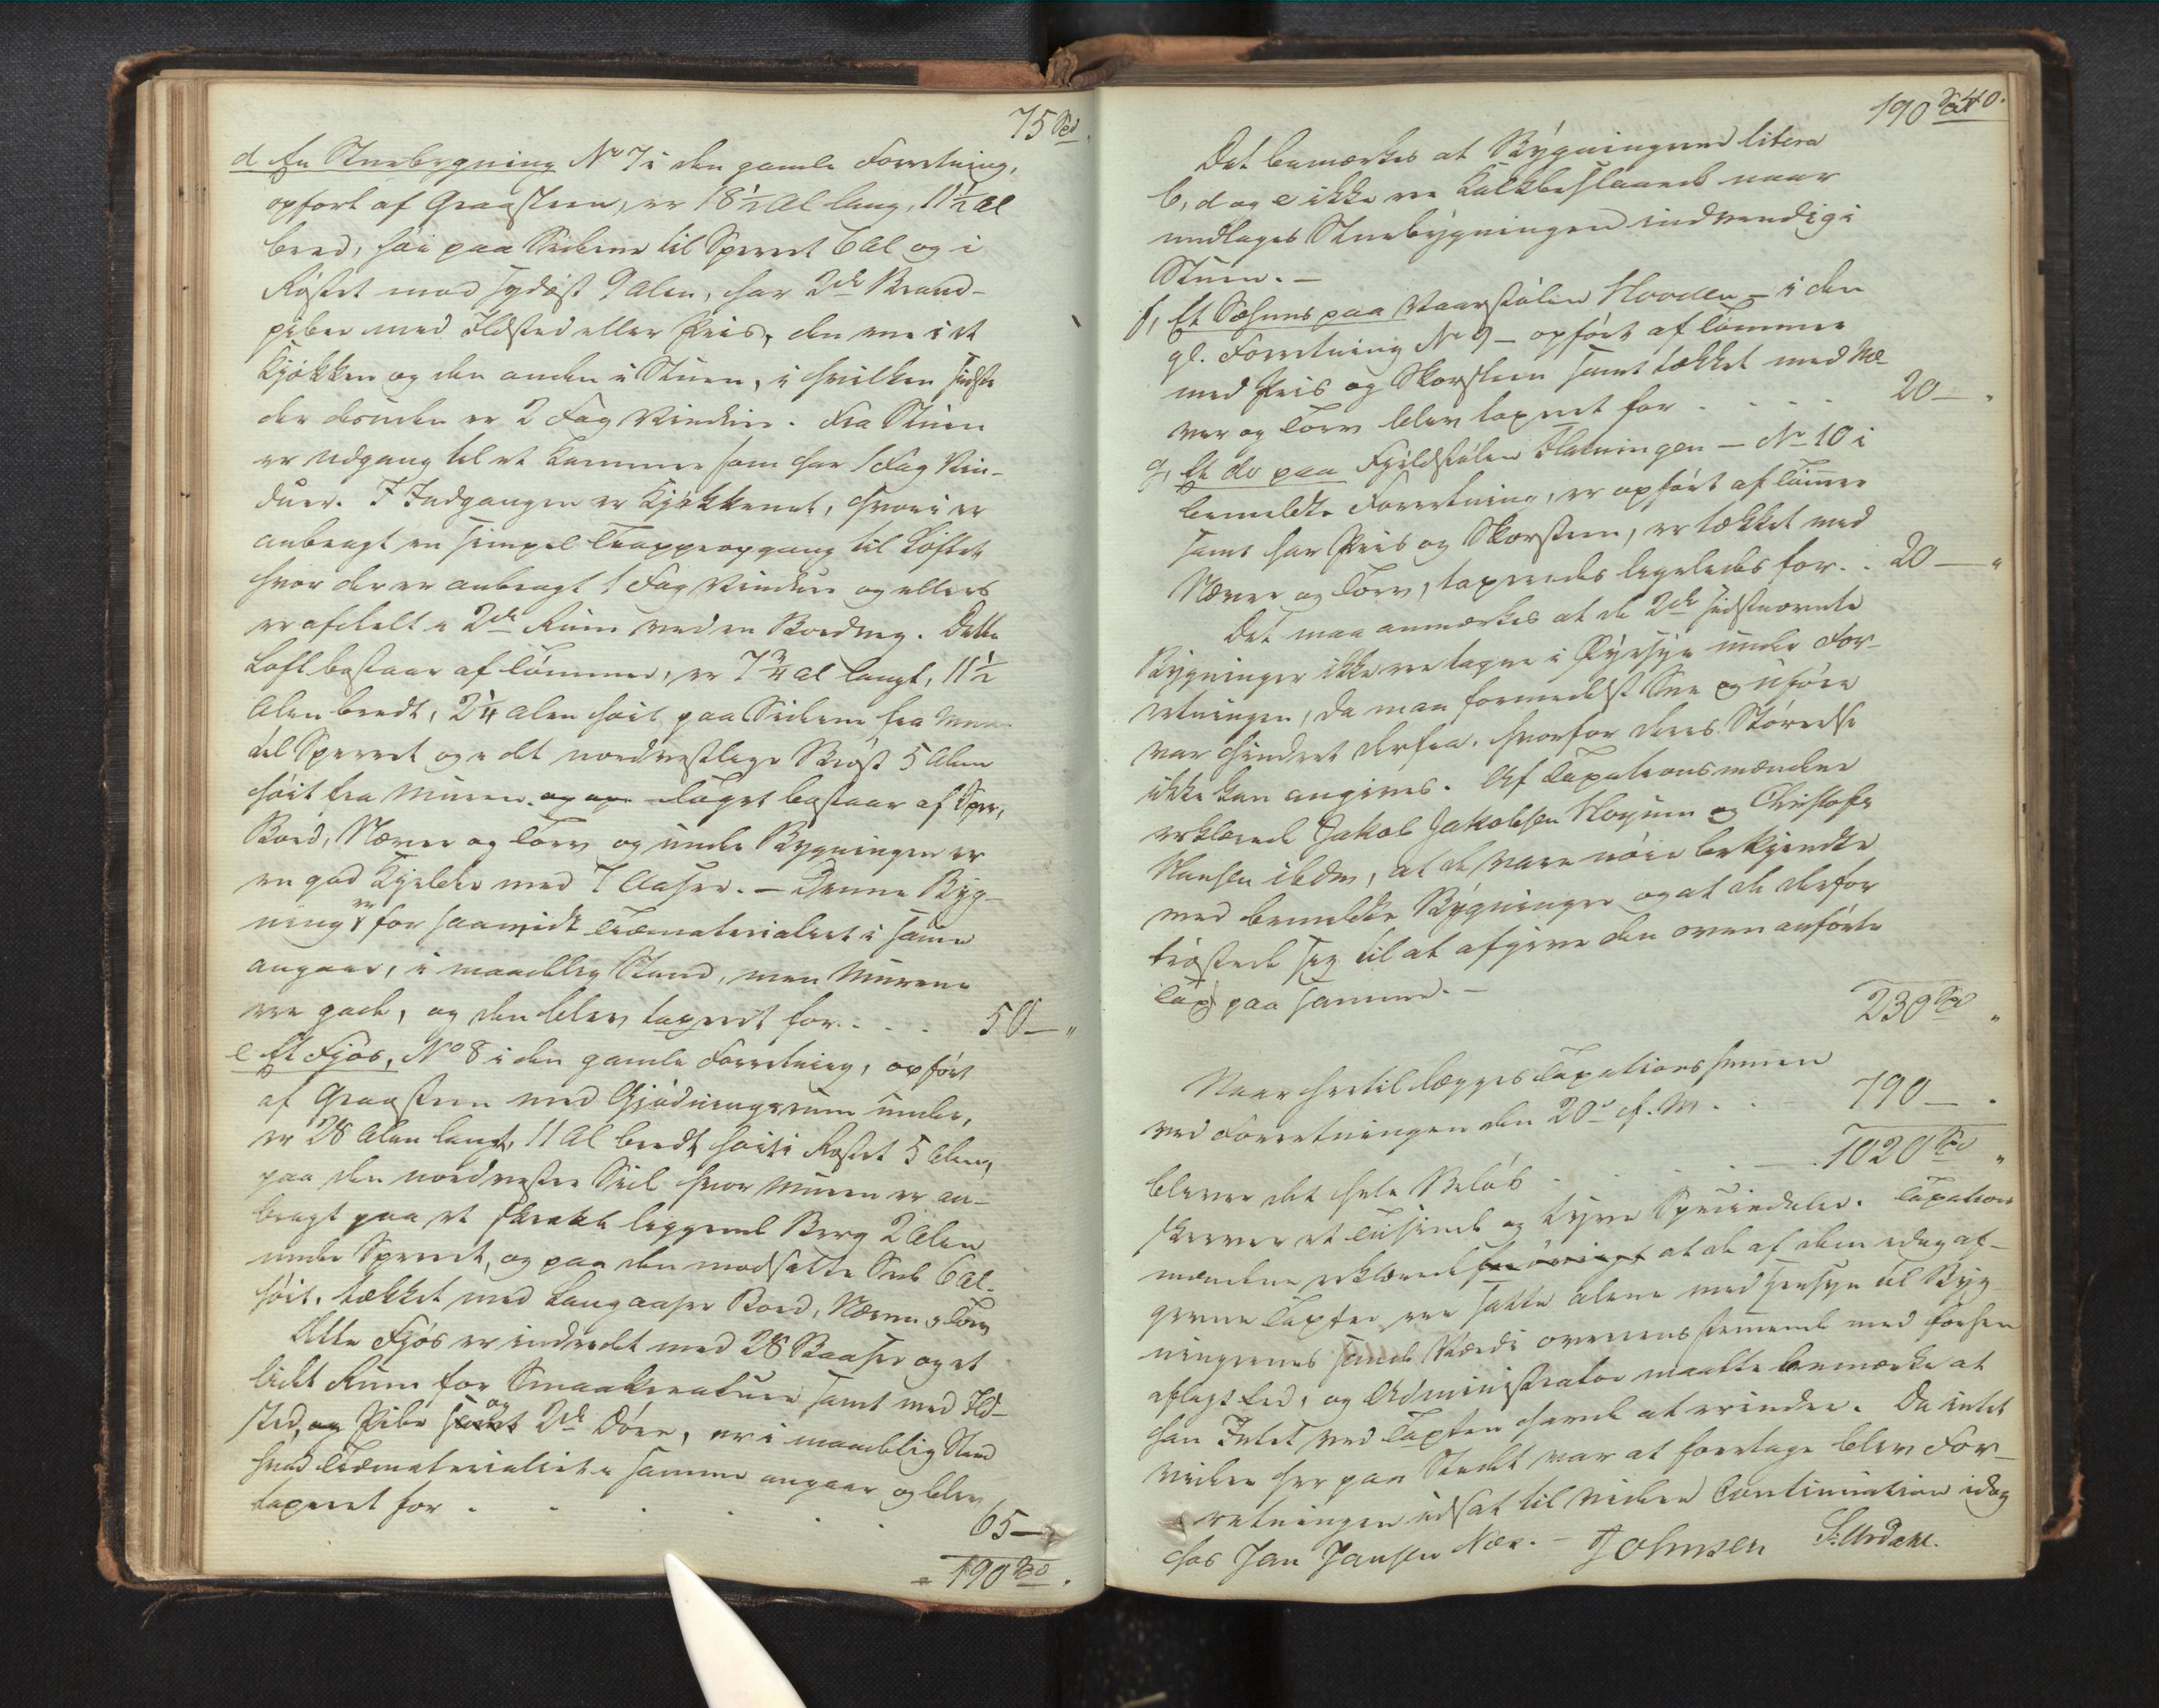 75 Spd
d En Stuebygning No 7 i den gamle Forretning,
opført af Graasteen, er 18½ Al lang, 11½ Al
bred, høi paa Siderne til Sperret 6 Al og i
Røstet mod Sydøst 9 Alen, har 2de Brand-
piber med Ildsted eller Peis, den ene i et
Kjøkken og den anden i Stuen, i hvilken sidste
der desuden er 2 Fag Vinduer. Fra Stuen
er Udgang til et Kammer som har 1 Fag Vin-
duer. I Indgangen er Kjøkkenet, hvori er
anbragt en simpel Trappeopgang til Loftet
hvor der er anbragt 1 Fag Vinduer og ellers
er afdelt i 2de Rum ved en Bordveg. Dette
Loft bestaar af Tømmer, er 7¾ Al langt, 11½
Alen bredt, 2¼ Alen høit paa Siderne fra Muren
til Sperret og i det nordvestlige Brøst 5 Alen
høit fra Muren. og Taget bestaar af Sper,
Bord, Næver og Torv og under Bygningen er
en god Kjelder med 7 Aaser. – Denne Byg-
ning er for saavidt Træmaterialiet i samme
angaar, i maadelig Stand, men Murene
ere gode, og den blev taxeret for . . . 50 – "
e Et Fjøs, No 8 i den gamle Forretning, opført
af Graasteen med Gjødningsrum under,
er 28 Alen langt, 11 Al bredt høit i Røstet 5 Alen,
paa den nordvestre Side hvor Muren er an-
bragt paa et skraat liggende Berg 2 Alen
under Sperret, og paa den modsatte Side 6 Al.
høit. tækket med Langaaser Bord, Næver og Torv
Dette Fjøs er indredet med 28 Baaser og et
lidet Rum for Smaakreature samt med Ild-
sted, og Pibe samt og 2de Døre, er i maadelig Stand
hvad Træmaterialiet i samme angaar og blev
taxeret for . . . . . 65 –
= 190 Spd .
190 Spd 40.
Det bemærkes at Bygningerne litera
b, d og e ikke ere Kalkbeslaaede naar
undtages Stuebygningen indvendig i
Stuen. –
f, Et Sæhuus paa Vaarstølen Hovden – i den
gl. Forretning No 9 – opført af Tømmer
med Peis og Skorsteen samt tækket med Næ-
ver og Torv blev taxeret for . . . . 20 – "
g, Et do paa Fjeldstølen – No 10 i
bemeldte Forretning, er opført af Tømmer
samt har Peis og Skorsteen, er tækket med
Næver og Torv, taxeredes ligeledes for . . 20 – "
Det maa anmærkes at de 2de sidstnævnte
Bygninger ikke ere tagne i Øiesyn under For-
retningen, da man formedelst Snee og Uføre
var hindret derfra. hvorfor deres Størrelse
ikke kan angives. Af Taxationsmændene
erklærede Jakob Jakobsen Høyum og Christofer
Hansen ibdm, at de vare nøie bekjendte
med bemeldte Bygninger og at de derfor
trøstede sig til at afgive den oven anførte
Taxt paa samme. –
230 Spd "
Naar hertil lægges Taxationssummen
ved Forretningen den 20de d. M. . . 790 – "
bliver det hele Beløb . . . . 1020 Spd "
skriver et Tusinde og tyve Speciedaler. Taxations
mændene erklærede for øvrigt at de af dem idag af-
givne Taxter ere satte alene med Hensyn til Byg-
ningernes sande Værdi overensstemmende med forhen
aflagt Eed, og Administrator maatte bemærke at
han Intet ved Taxten havde at erindre. Da intet
videre her paa Stedet var at foretage blev For-
retningen udsat til videre Continuation idag
hos Jan Jansen Næs. – Johnsen S: Urdahl.